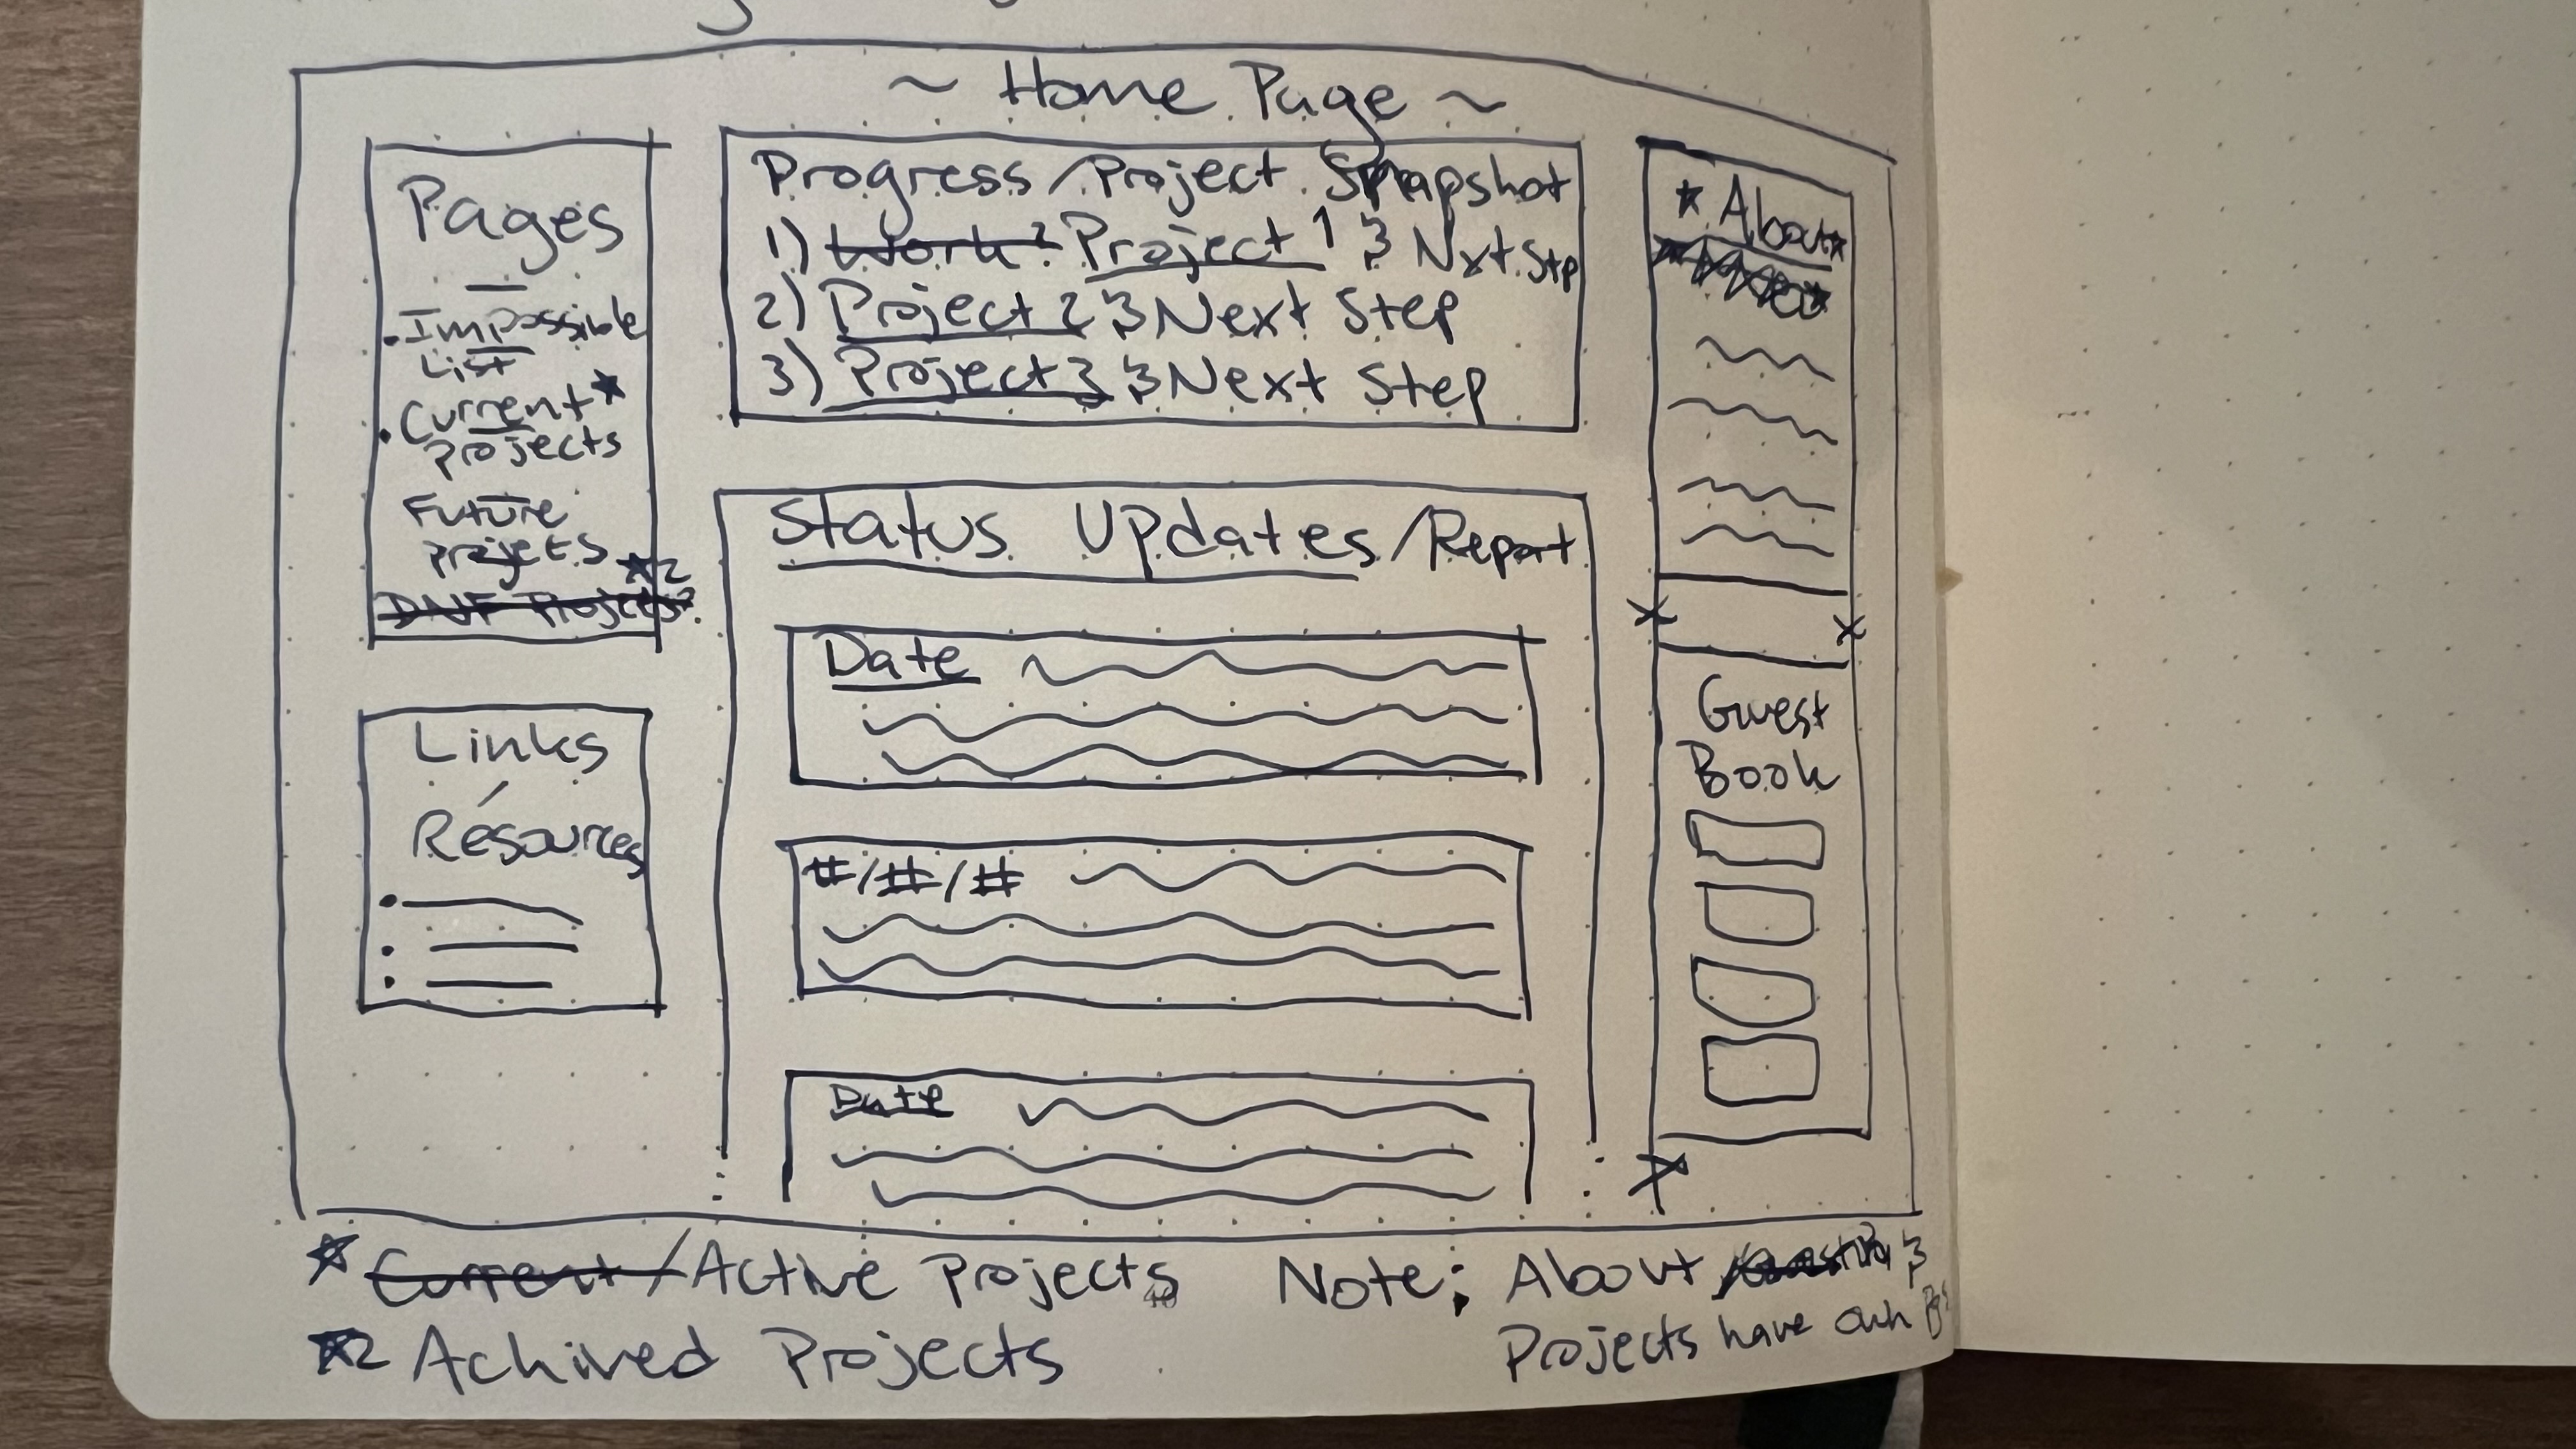 ~ Home Page ~
Pages
Impossible
List
Current*
Projects
Future
Projects *2
DNF Projects?
Links
/
Resources
Progress/Project Snapshot
1) Work? Project 1 & Nxt Stp
2) Project 2 & Next Step
3) Project 3 & Next Step
Status Updates/Report
Date
#/#/#
Date
* About *
Guest
Book
* Current/Active Projects
*2 Achived Projects
Note: About &
Projects have own